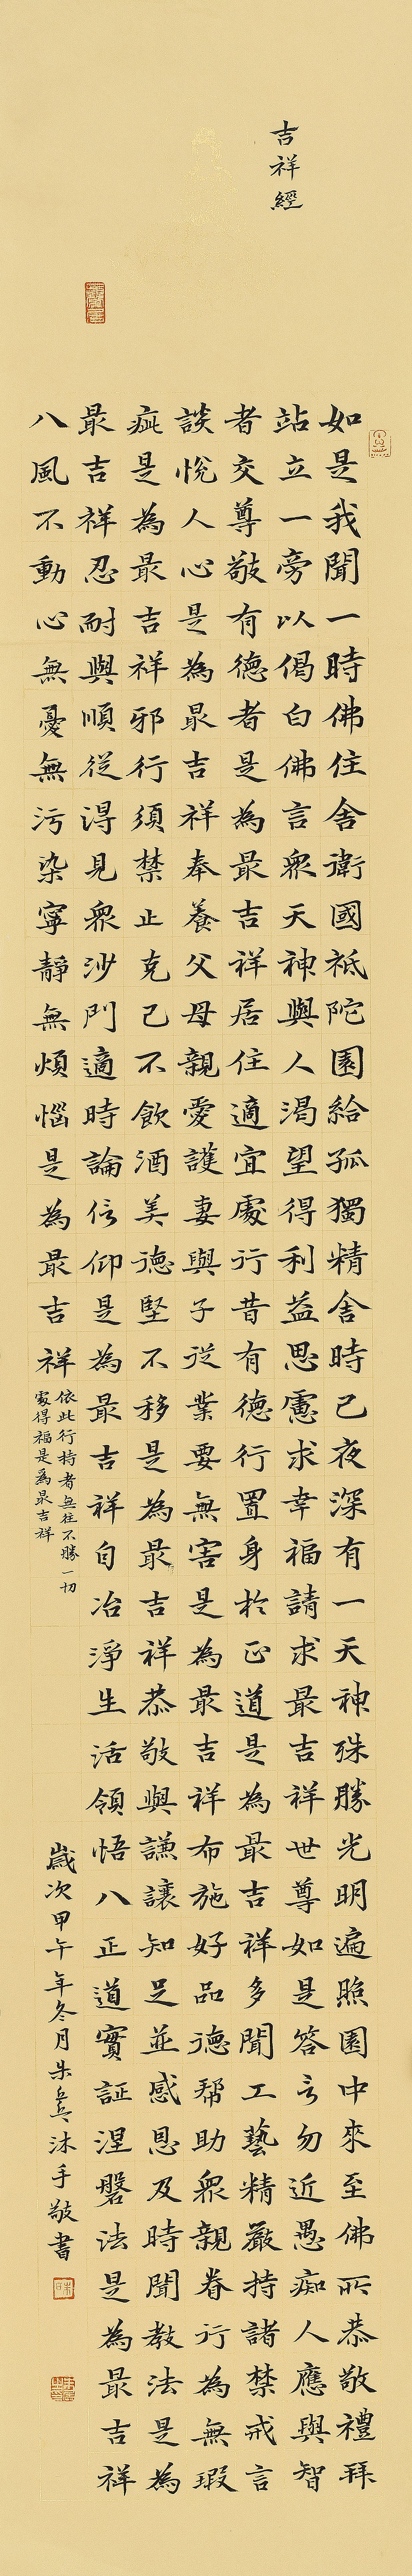 吉祥經
如是我聞一時佛住舍衛國祗陀園給孤獨精舍時已夜深有一天神殊勝光明遍照園中來至佛所恭敬禮拜
站立一旁以偈白佛言眾天神與人渴望得利益思慮求幸福請求最吉祥世尊如是答言勿近愚痴人應與智
者交尊敬有德者是為最吉祥居住適宜處行昔有德行置身於正道是為最吉祥多聞工藝精嚴持諸禁戒言
談悅人心是為最吉祥奉養父母親愛護妻與子從業要無害是為最吉祥布施好品德帮助眾親眷行為無瑕
疵是為最吉祥邪行須禁止克己不飲酒美德堅不移是為最吉祥恭敬與謙讓知足並感恩及時聞教法是為
最吉祥忍耐與順從得見眾沙門適時論信仰是為最吉祥自冶淨生活領悟八正道實証涅磐法是為最吉祥
八風不動心無憂無污染寧靜無煩惱是為最吉祥
依此行持者無往不勝一切
處得福是為最吉祥
歲次甲午年冬月朱沐手敬書